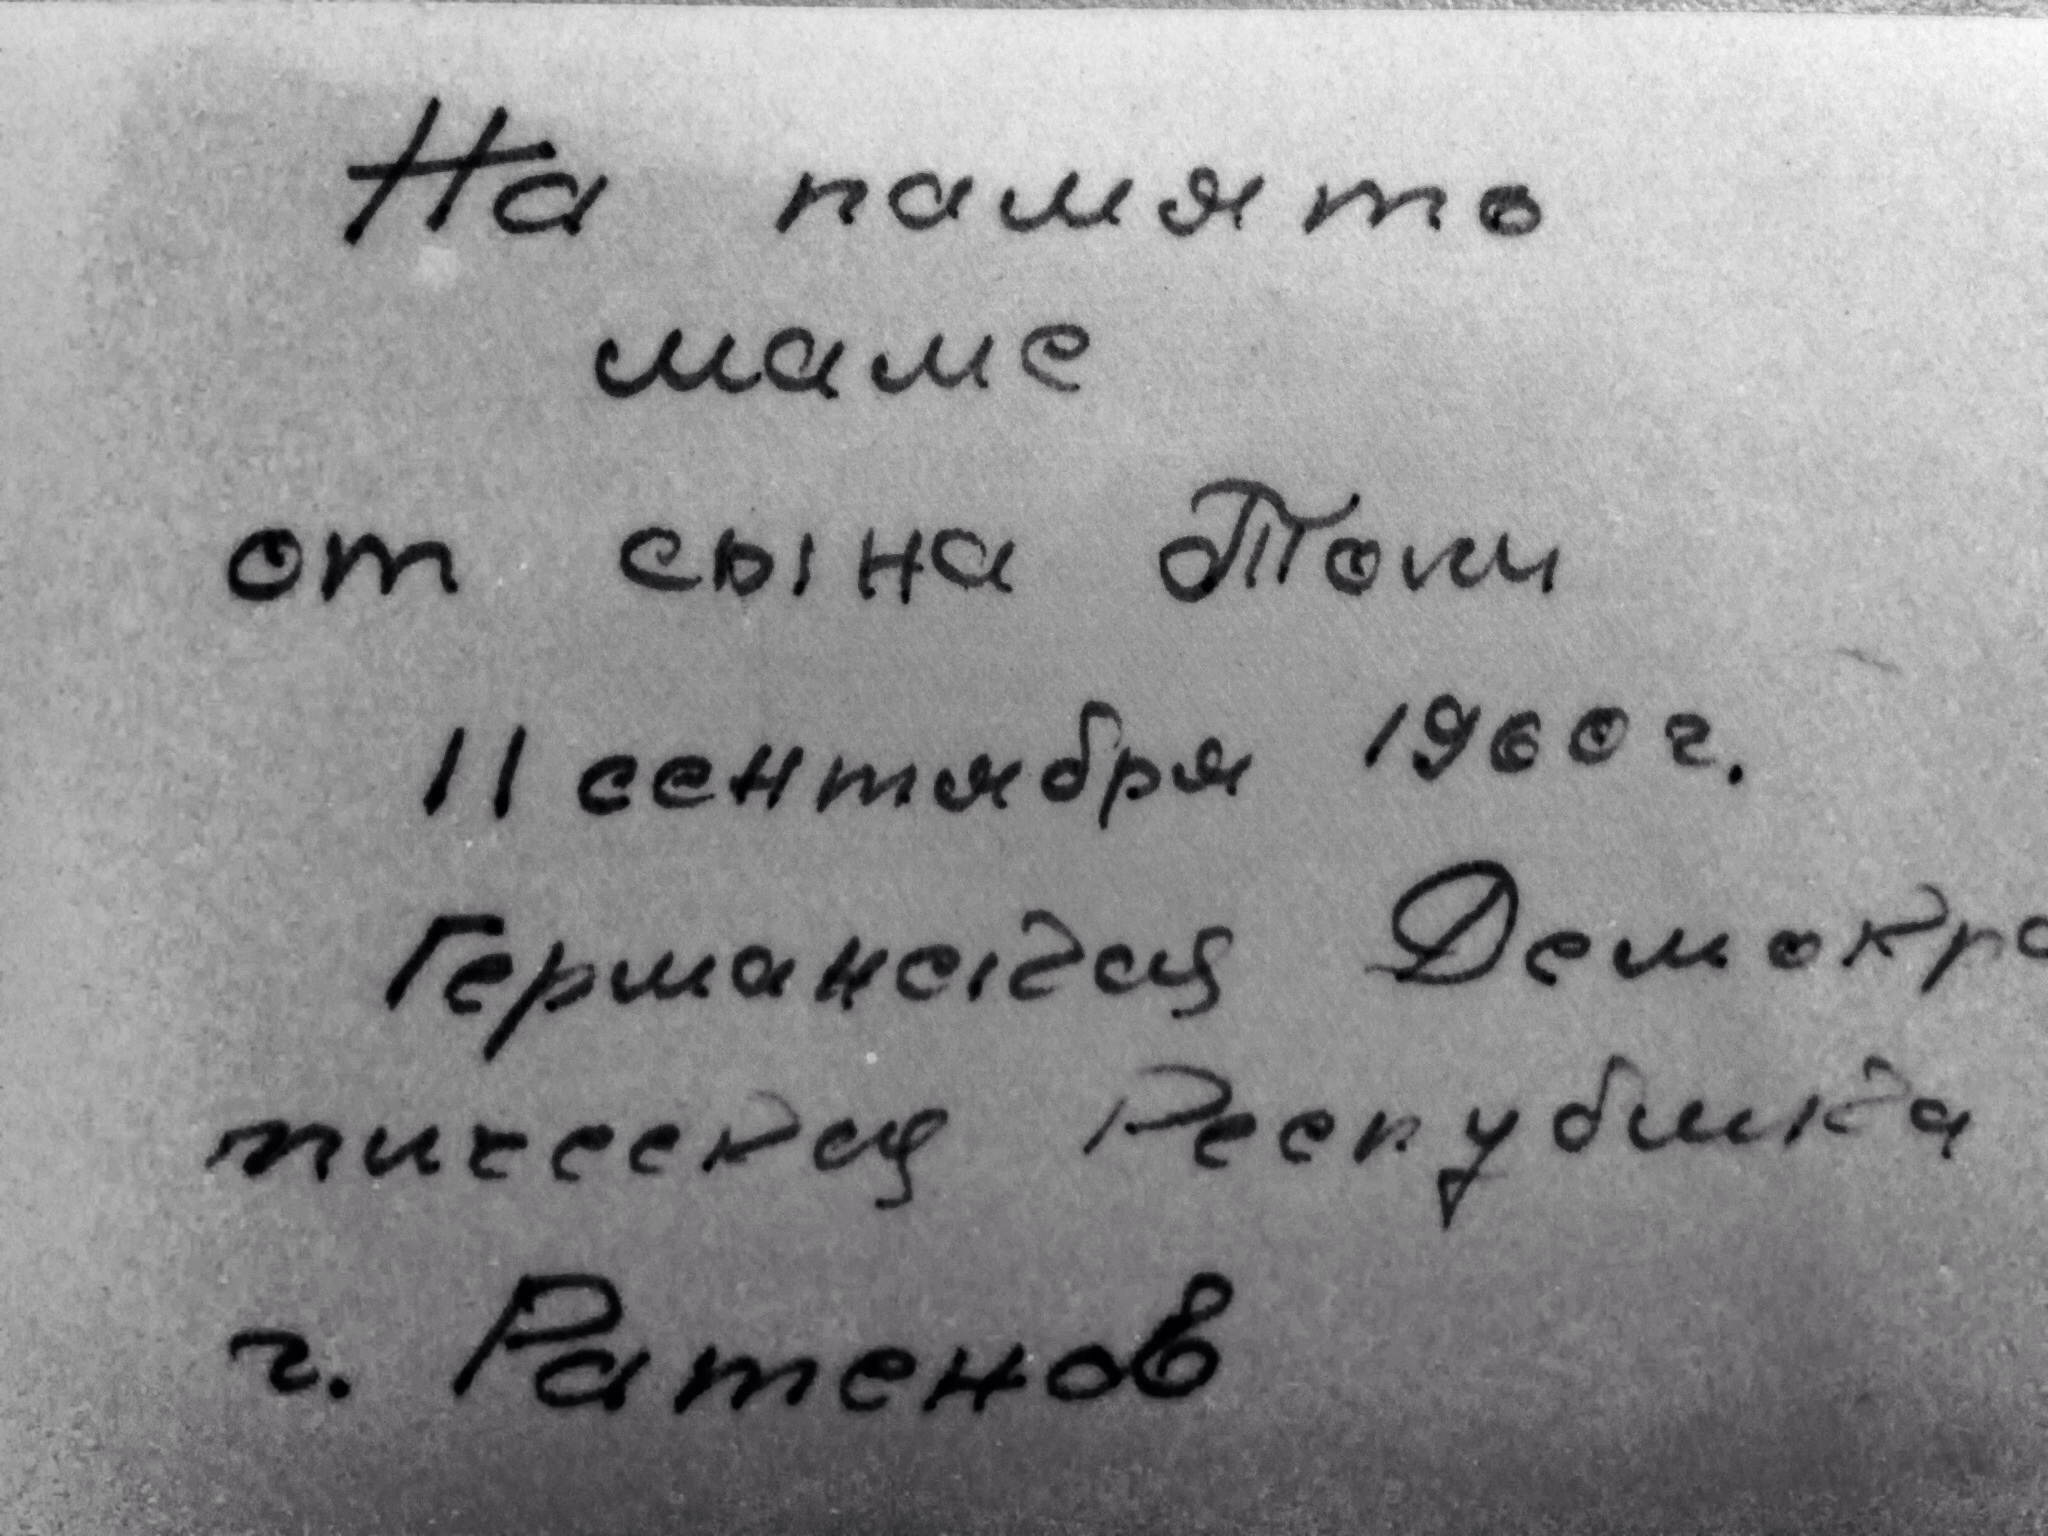 На память
маме
от сына Толи
11 сентября 1960 г.
Германская Демокра
тическая Республика
г. Ратенов